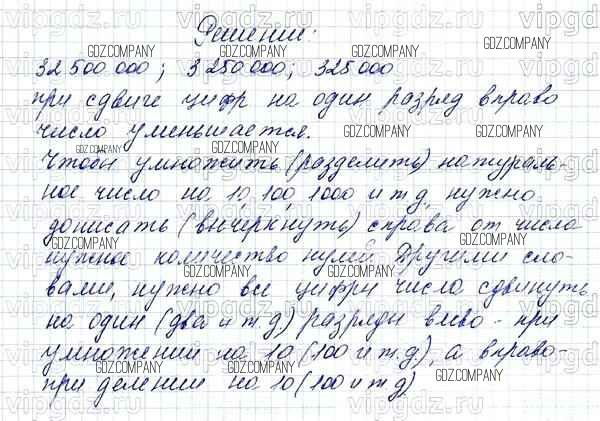 Решение:
32 500 000; 3 250 000; 325 000
при сдвиге цифр на один разряд вправо
число уменьшается.
Чтобы умножить (разделить) натураль-
ное число на 10, 100, 1000 и т.д, нужно
дописать (вычеркнуть) справа от числа
нужное количество нулей. Другими сло-
вами, нужно все цифры числа сдвинуть
на один (два и т.д) разряды влево - при
умножении на 10 (100 и т.д), а вправо-
при делении на 10 (100 и т.д)